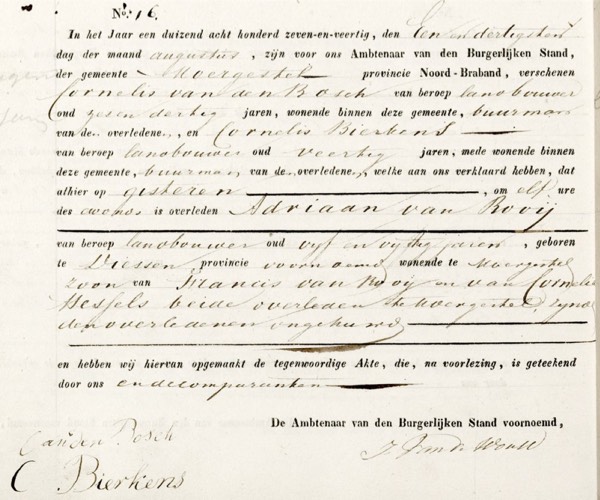 No. 16.
In het Jaar een duizend acht honderd zeven-en-veertig, den Een en dertigsten
dag der maand augustus, zijn voor ons Ambtenaar van den Burgerlijken Stand,
der gemeente Moergestel provincie Noord-Braband, verschenen
Cornelis van den Bosch van beroep landbouwer
oud zesendertig jaren, wonende binnen deze gemeente, buurman
van den overledenen, en Cornelis Bierkens
van beroep landbouwer oud veertig jaren, mede wonende binnen
deze gemeente, buurman van den overledenen, welke aan ons verklaard hebben, dat
alhier op gisteren, om elf ure
des avonds is overleden Adriaan van Rooij
van beroep landbouwer oud vyf en vijftig jaren, geboren
te Diessen provincie voornoemd wonende te Moergestel
zoon van Francis van Rooij en van Cornelia
Hessels beide overleden te Moergestel, zynde
den overledenen ongehuwd
en hebben wij hiervan opgemaakt de tegenwoordige Akte, die, na voorlezing, is geteekend
door ons en de comparanten
De Ambtenaar van den Burgerlijken Stand voornoemd,
C van den Bosch
C Bierkens